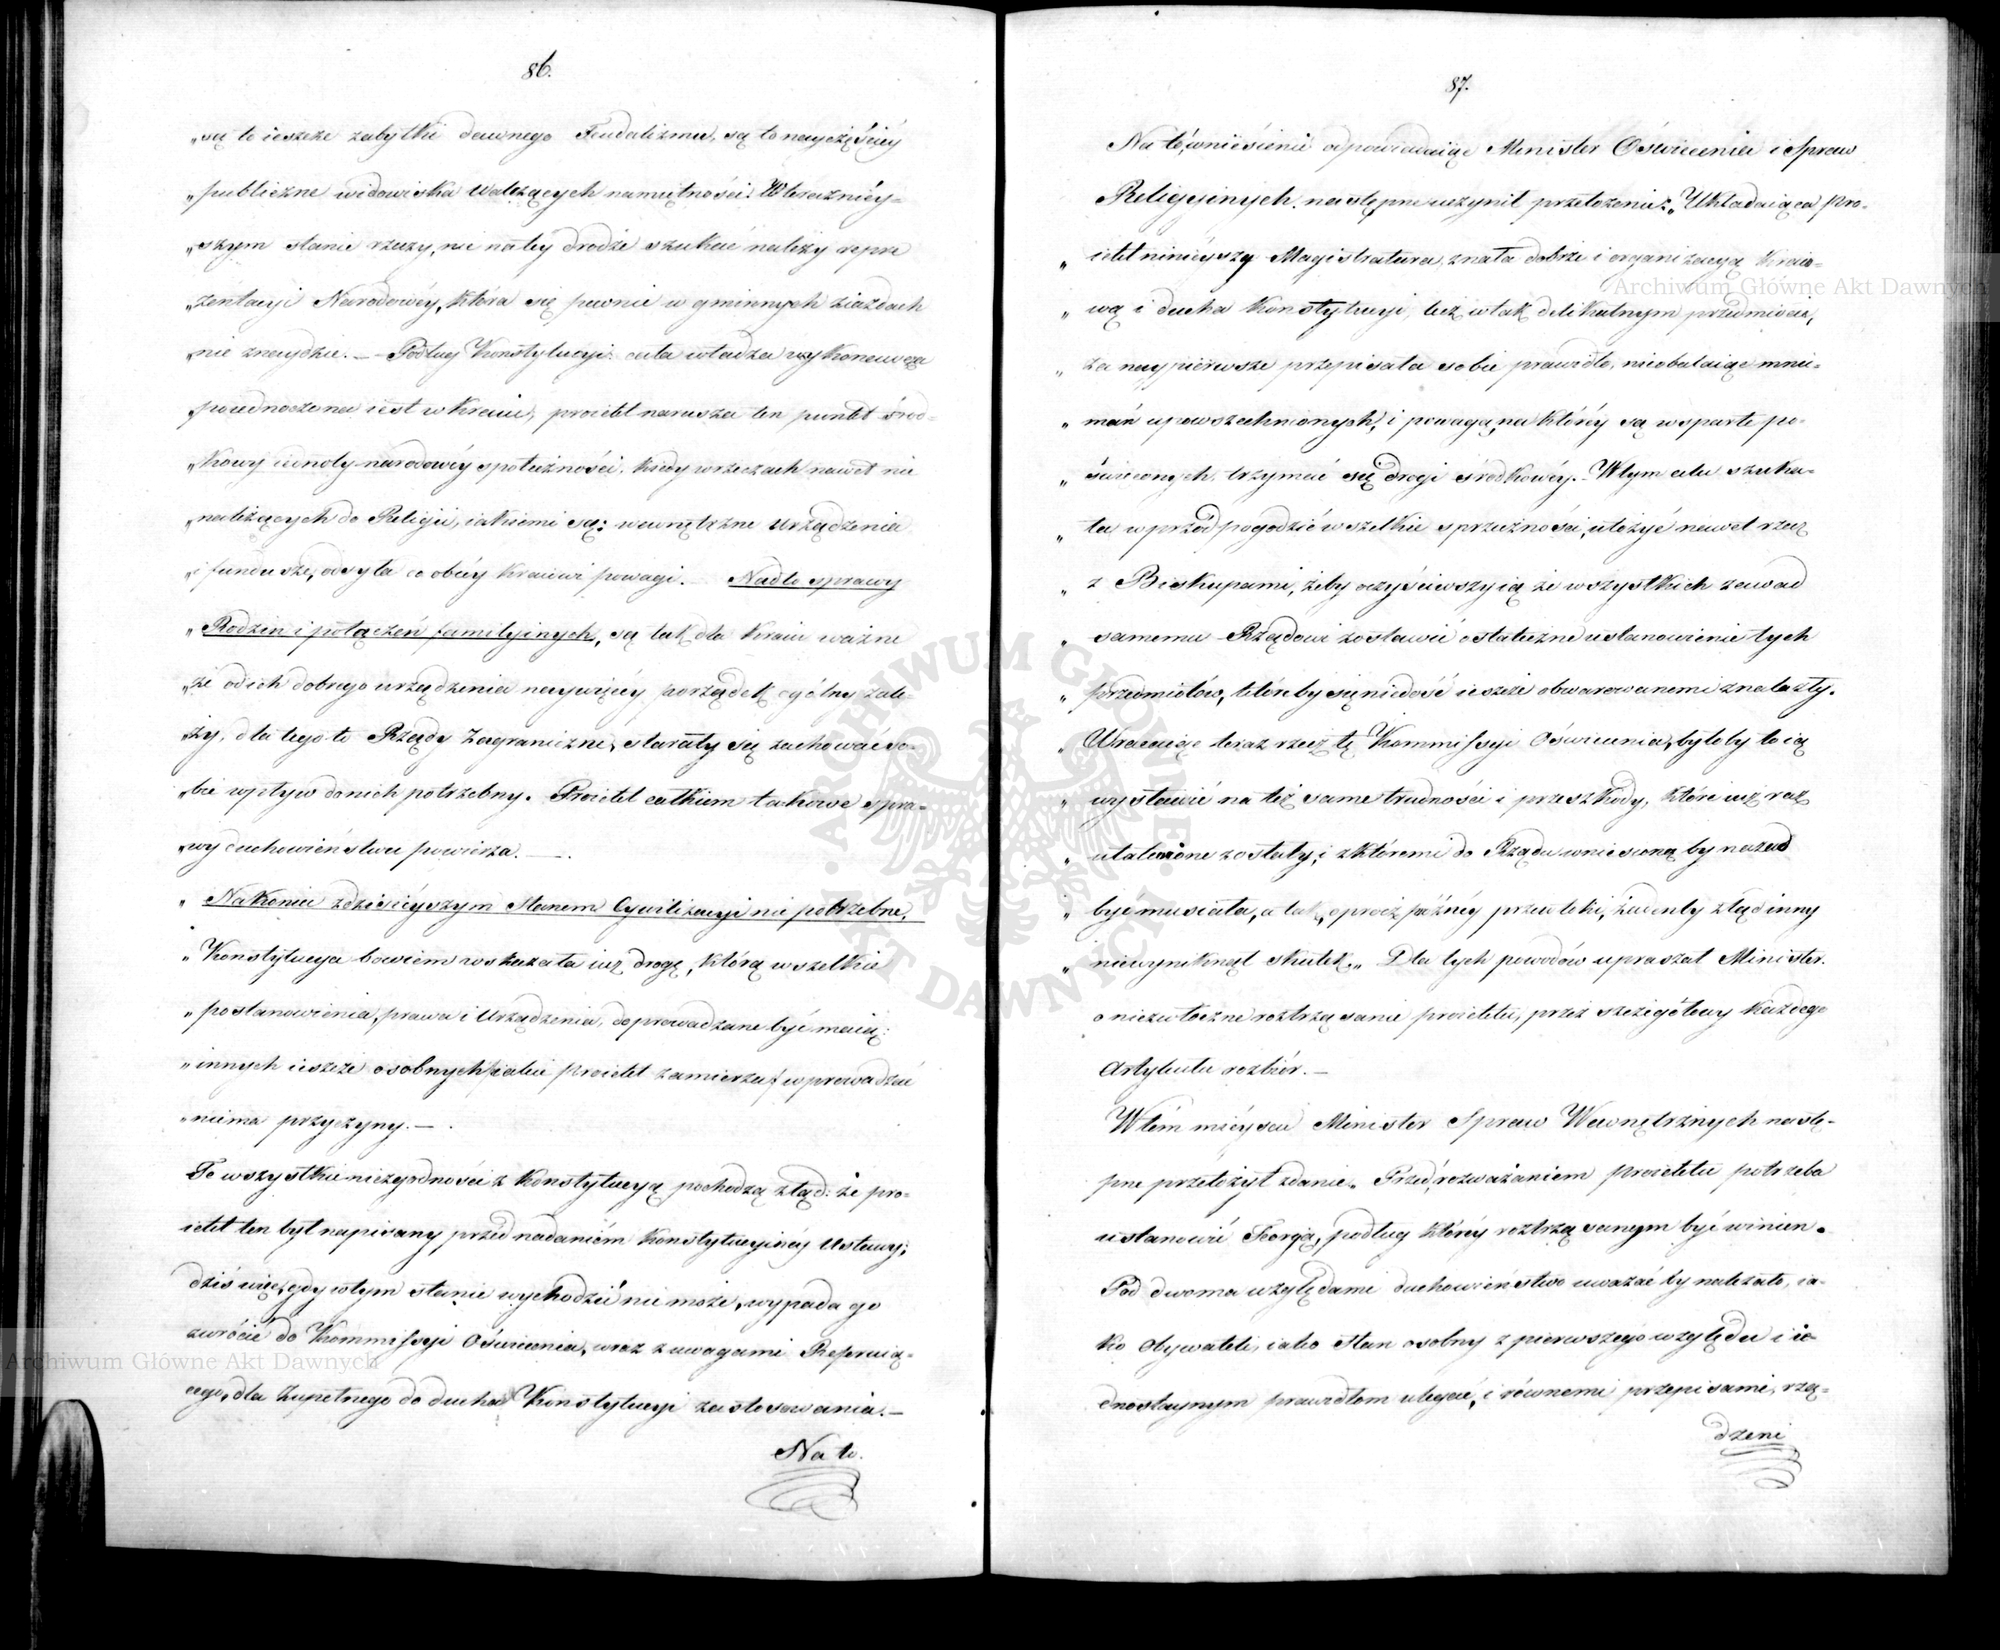 86.
„są to ieszcze zabytki dawnego Feudalizmu, są to nayczęściéy
„publiczne widowiska walczących namiętności. W teraźniéy-
„szym stanie rzeczy, nie na téy drodze szukać należy repre
„zentacyi Narodowéy, która się pewnie w gminnych ziazdach
„nie znaydzie. — Podług Konstytucyi cała władza wykonawcza
„poiednoczona iest w Kraiu, proiekt narusza ten punkt środ-
„kowy iednoty narodowéy społeczności, kiedy w rzeczach nawet nie
„należących do Religii, iakiemi są: wewnętrzne urządzenia
„i fundusze, odsyła co obcéy Kraiowi powagi. — Nadto sprawy
„Rodzin i połączeń familyinych, są tak dla Kraiu ważne
„że od ich dobrego urządzenia naywięcéy porządek ogólny zale-
„ży, dla tego to Rządy Zagraniczne, starały się zachować so-
„bie wpływ do nich potrzebny. Proiekt całkiem takowe spra-
„wy duchowieństwu powierza. —.
„Nakoniec z dzisieyszym Stanem Cywilizacyi nie potrzebne,
„Konstytucya bowiem wskazała iuż drogę, którą wszelkie
„postanowienia, prawa i Urządzenia, doprowadzane być maią:
„innych ieszcze osobnych (iakie proiekt zamierza) wprowadzać
„niema przyczyny. —.
Te wszystkie niezgodności z Konstytucyą pochodzą ztąd: że pro-
iekt ten był napisany przed nadaniem Konstytucyinéy Ustawy;
dziś więc, gdy w tym stanie wychodzić nie może, wypada go
zwrócić do Kommissyi Oświecenia, wraz z uwagami Referuią-
cego, dla zupełnego do ducha Konstytucyi zastosowania. —
Na to.
87.
Na to wniesienie odpowiadaiąc Minister Oświecenia i Spraw
Religijnych następne uczynił przełożenie: „Układaiąca pro-
„iekt ninieyszy Magistratura, znała dobrze i organizacyą Kraio-
„wą i ducha Konstytucyi, lecz w tak delikatnym przedmiocie,
„za naypierwsze przepisała sobie prawidło, nieobalaiąc mnie-
„mań upowszechnionych, i powagą na któréy są wsparte po-
„święconych, trzymać się drogi środkowéy. W tym celu szuka-
„ła wprzód pogodzić wszelkie sprzeczności, ułożyć nawet rzecz
„z Biskupami, żeby oczyściwszy ią ze wszystkich zawad
„samemu Rządowi zostawić ostateczne ustanowienie tych
„przedmiotów, któreby się niedość ieszcze obwarowanemi znalazły.
„Wracaiąc teraz rzecz tę Kommissyi Oświecenia, byłoby to ią
„wystawić na też same trudności i przeszkody, które iuż raz
„ułatwione zostały, i z któremi do Rządu wniesioną by nazad
„być musiała, a tak, oprócz późnéy przewłoki, żadenby ztąd inny
„niewyniknął skutek„ Dla tych powodów upraszał Minister
o niezwłoczne roztrząsanie proiektu, przez szczegółowy każdego
Artykułu rozbiór. —
W tém mieyscu Minister Spraw Wewnętrznych nastę-
pne przełożył zdanie. Przed rozważaniem proiektu potrzeba
ustanowić Teoryą, podług któréy roztrząsanym być winien.
Pod dwoma względami duchowieństwo uważać by należało, ia-
ko Obywateli, iako Stan osobny z pierwszego względu i ie-
dnostaynym prawidłom ulegać, i równemi przepisami, rzą-
dzeni
Archiwum Główne Akt Dawnych
Archiwum Główne Akt Dawnych
ARCHIWUM GŁÓWNE AKT DAWNYCH